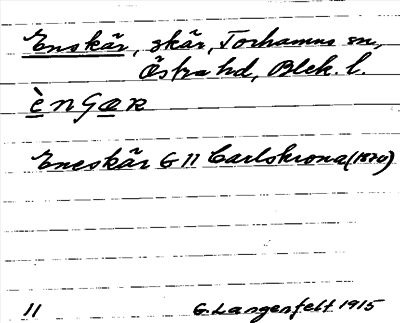 Enskär, skär, Torhamns sn,
Östra hd, Blek. l.
ènʂær
Eneskär G 11 Carlskrona (1870)
11 G. Langenfelt 1915